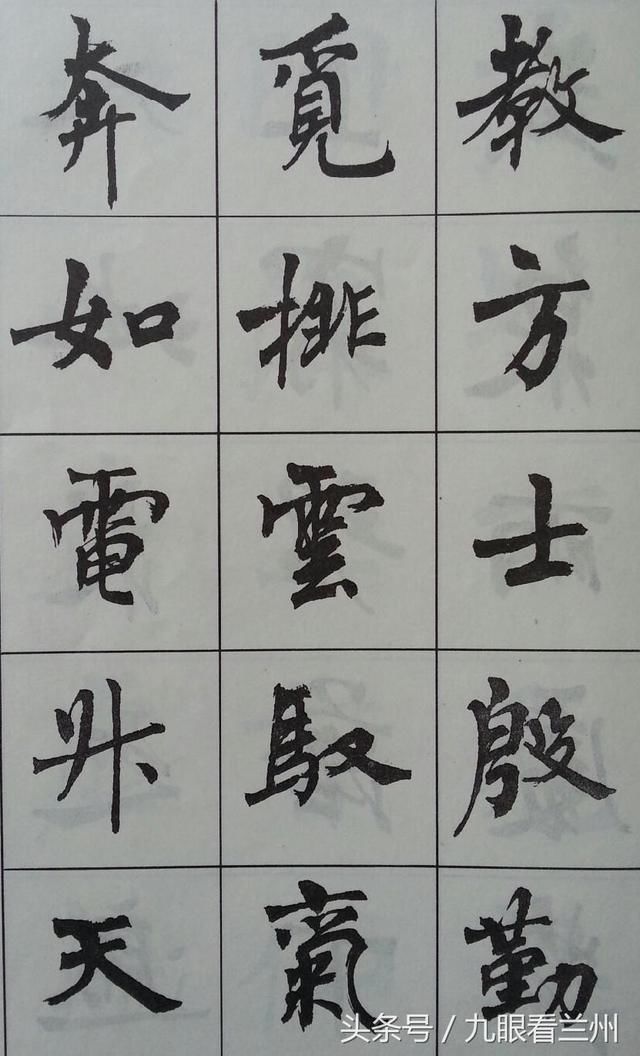 教方士殷勤
覓排雲馭氣
奔如電升天
头条号/九眼看兰州